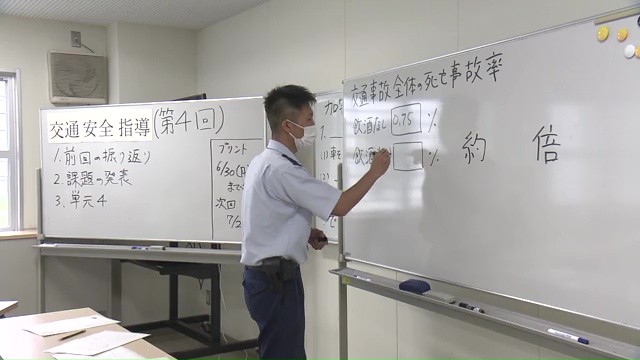 交通安全指導(第4回)
1.前回の振り返り
2.課題の発表
3.単元4
プリント
6/30(月)
まで
次回
7/2
1.
(1)
(2)
交通事故全体の死亡事故率
飲酒なし 0.75 %
飲酒 %
約 倍